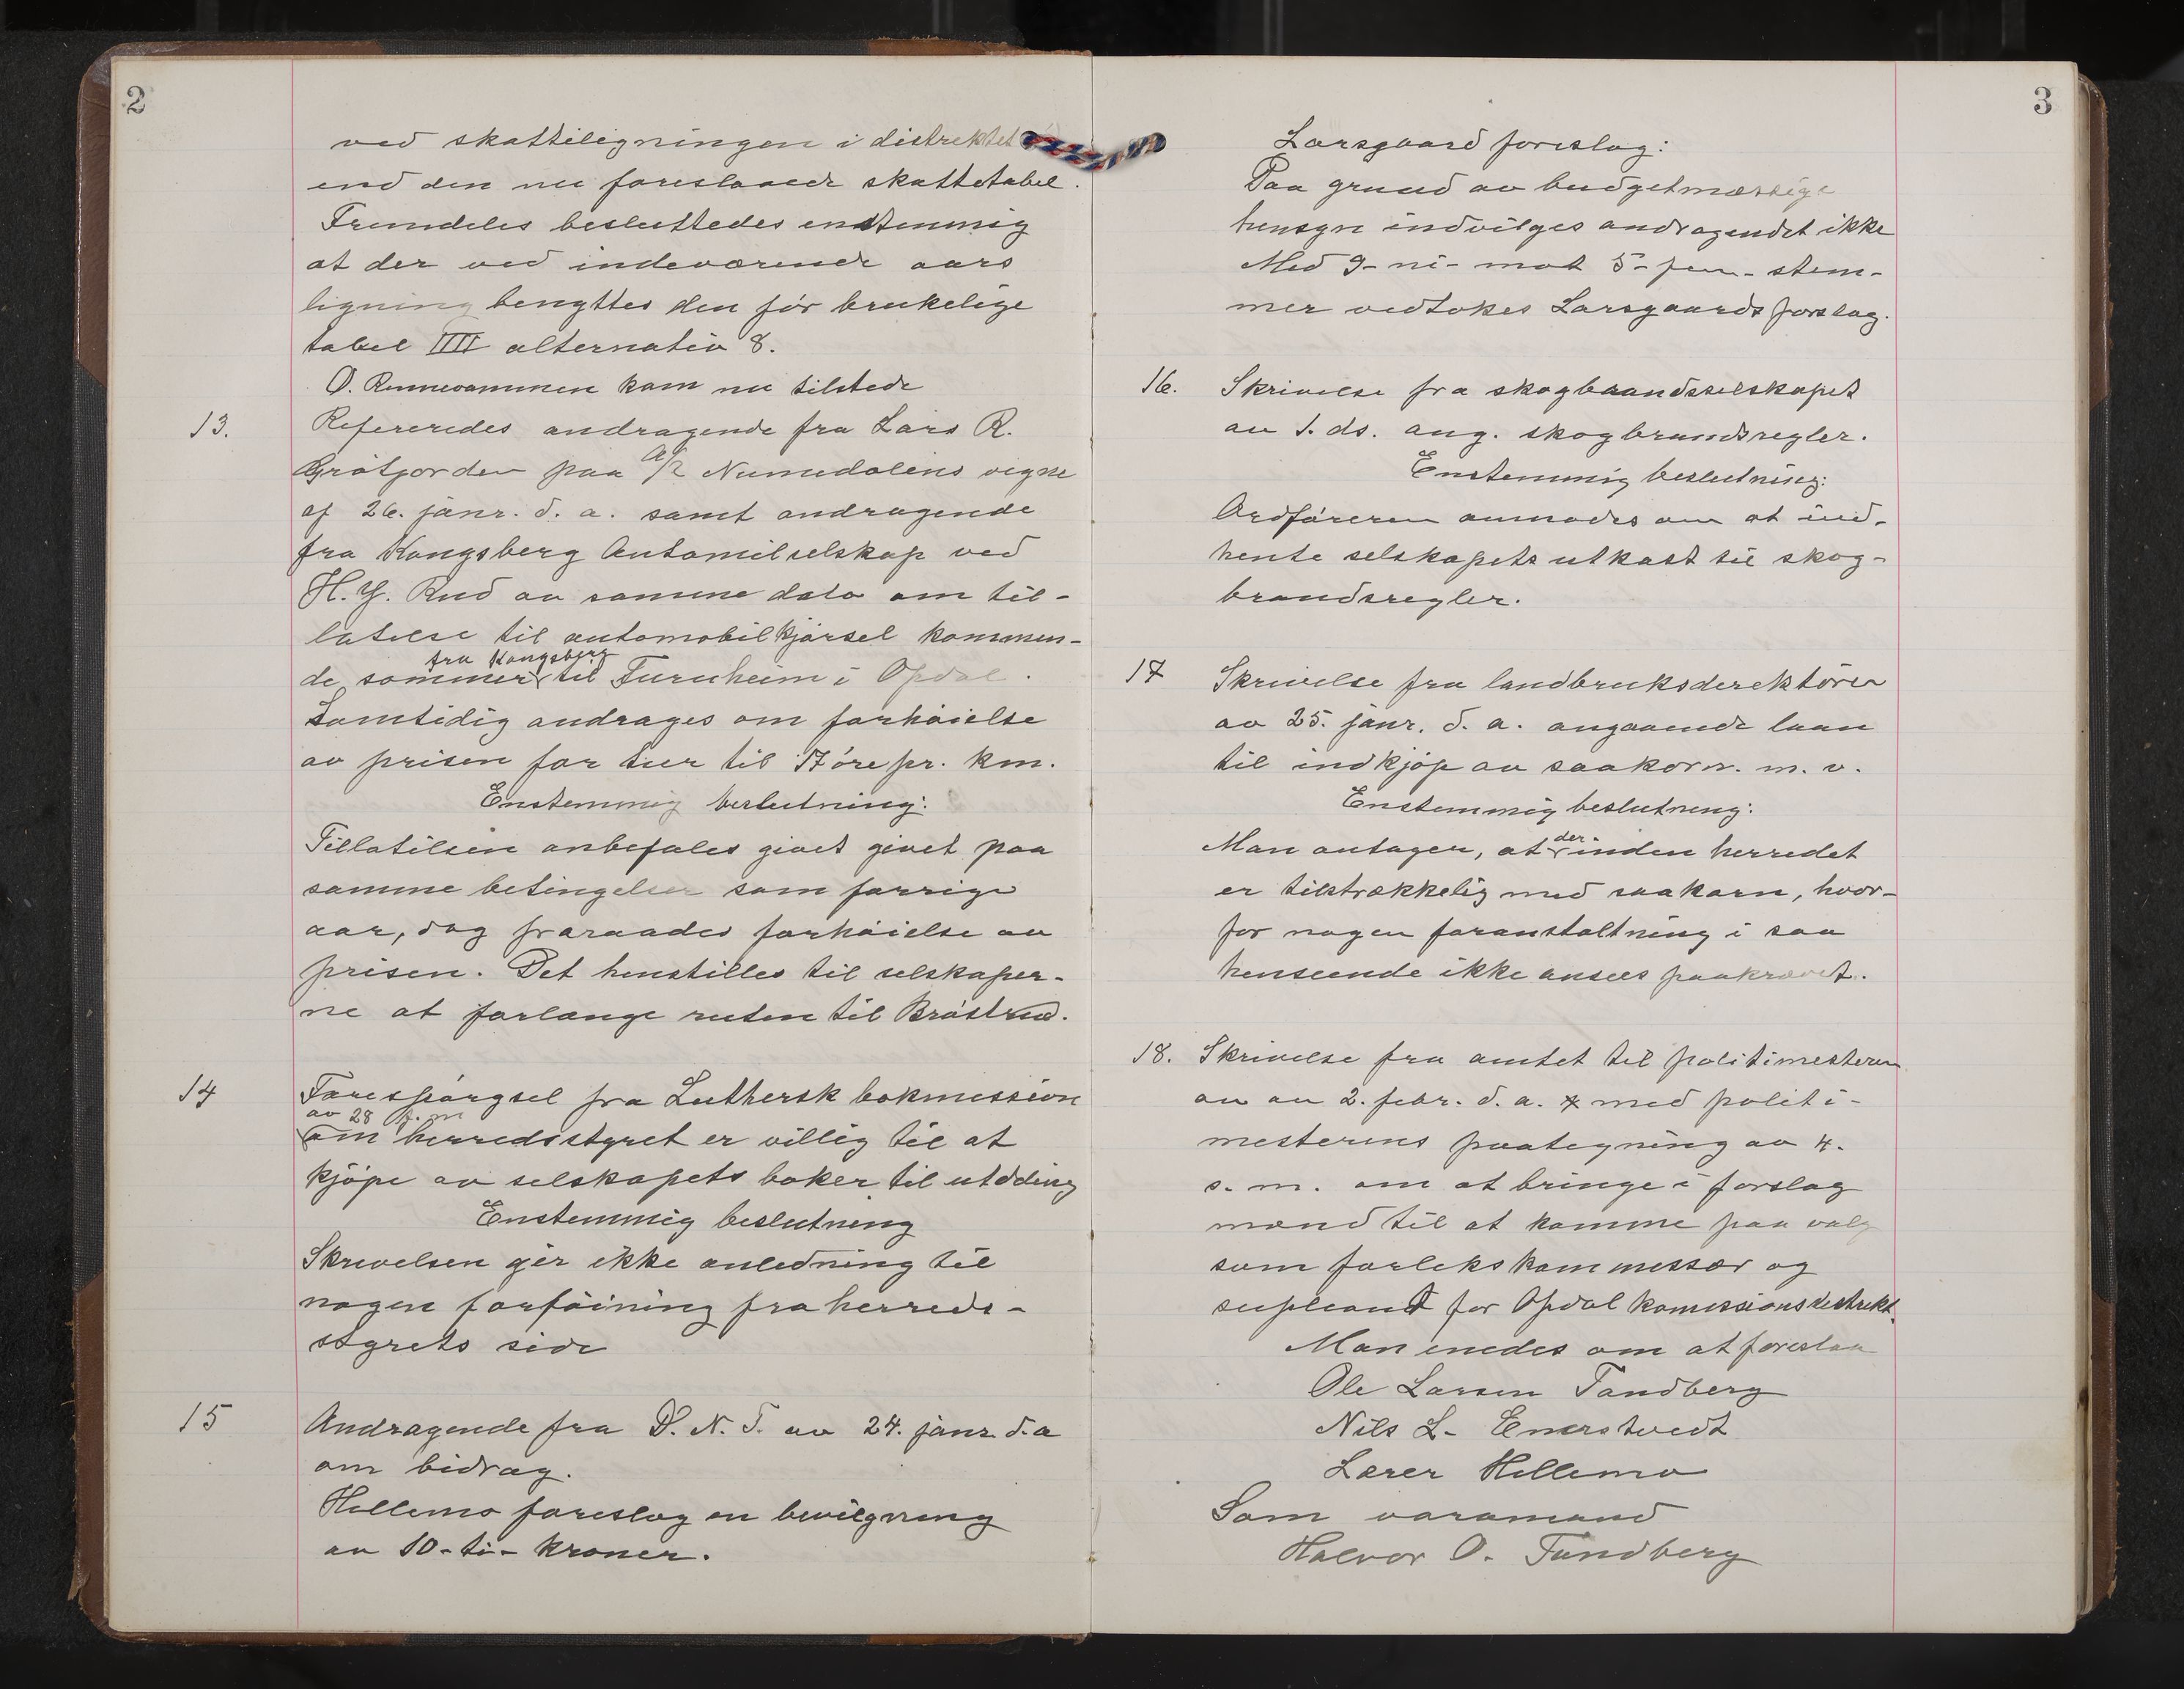 2
ved skatteligningen i distriktet
end den nu foreslaaede skattetabel.
Fremdeles besluttedes enstemmig
at der ved indeværende aars
ligning benyttes den før brukelige
tabel IIII alternativ 8.
O. Rennevammen kom nu tilstede
13. Refereredes andragende fra Lars R.
Grøtjorden paa A/S Numedalens vegne
af 26. janr. d. a. samt andragende
fra Kongsberg Automilselskap ved
H. G. Rud av samme dato om til-
latelse til automobilkjørsel kommen-
fra Kongsberg
de sommer til Furuheim i Opdal.
Samtidig andrages om forhøielse
av prisen for tur til 17 øre pr. km.
Enstemmig beslutning:
Tillatelsen anbefales givet givet paa
samme betingelser som forrige
aar, dog fraraades forhøielse av
prisen. Det henstilles til selskaper-
ne at forlænge ruten til Brøstrud.
14 Forespørgsel fra Luthersk bokmission
av 28 f. m
om herredsstyret er villig til at
kjøpe av selskapets bøker til utdeling
Enstemmig beslutning
Skrivelsen gir ikke anledning til
nogen forføining fra herreds-
styrets side
15 Andragende fra D. N. T. av 24. janr. d. a
om bidrag.
Hellemo foreslog en bevilgning
av 10-ti- kroner.
3
Larsgaard foreslog:
Paa grund av budgetmæssige
hensyn indvilges andragendet ikke
Med 9-ni- mot 5-fem- stem-
mer vedtokes Larsgaards forslag.
16. Skrivelse fra skogbrandsselskapet
av 1. ds. ang. skogbrandsregler.
Enstemmig beslutning:
Ordføreren anmodes om at ind-
hente selskapets utkast til skog-
brandsregler.
17 Skrivelse fra landbruksdirektøren
av 25. janr. d. a. angaaende laan
til indkjøp av saakorn. m. v.
Enstemmig beslutning:
der
Man antager, at inden herredet
er tilstrækkelig med saakorn, hvor-
for nogen foranstaltning i saa
henseende ikke ansees paakrævet.
18. Skrivelse fra amtet til politimesteren
av av 2. febr. d. a. med politi-
mesterens paategning av 4.
s. m. om at bringe i forslag
mænd til at komme paa valg
som forlikskommissær og
supleant for Opdal komissionsdistrikt.
Man enedes om at foreslaa
Ole Larsen Tandberg
Nils L. Enerstvedt
Lærer Hellemo
Som varamand
Halvor O. Tandberg